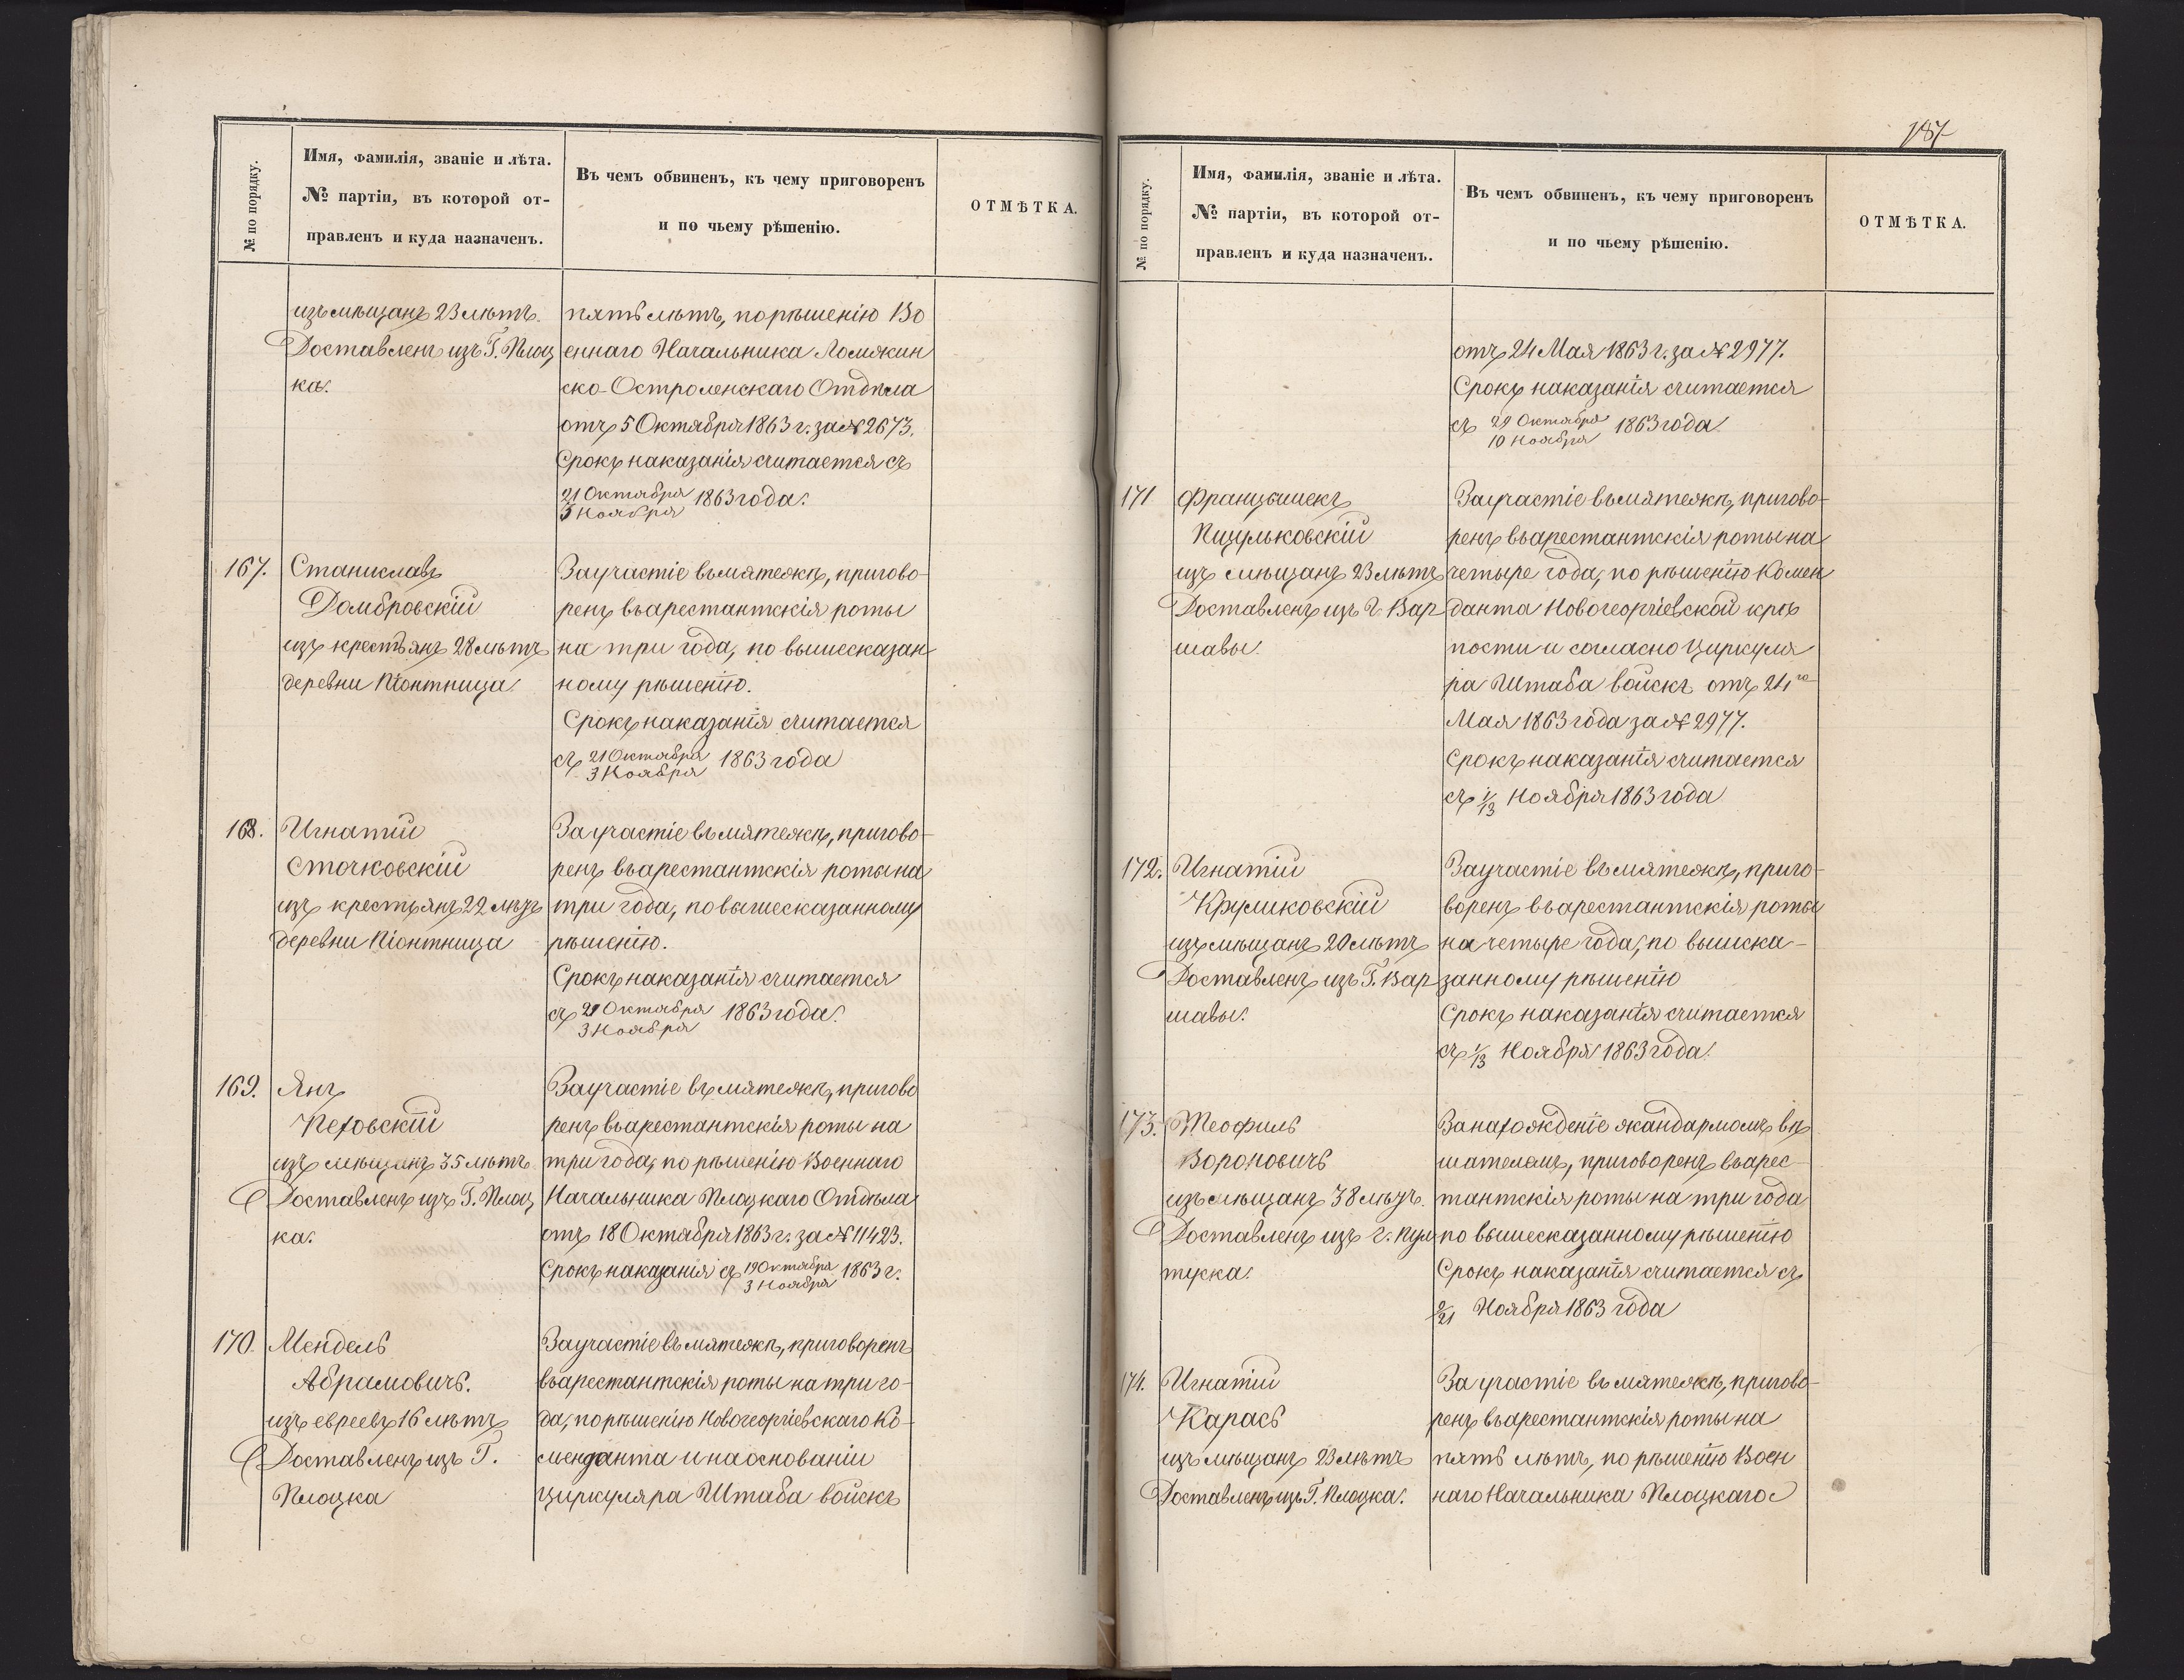 № по порядку.
Имя, фамилія, званіе и лѣта.
№ партіи, въ которой от-
правленъ и куда назначенъ.
Въ чемъ обвиненъ, къ чему приговоренъ
и по чьему рѣшенію.
ОТМѢТКА.
изъ мѣщанъ 23 лѣтъ.
Доставленъ изъ Г. Плоц
ка.
пять лѣтъ, по рѣшенію Во
еннаго Начальника Ломжин
ско-Остроленскаго Отдѣла
отъ 5 Октября 1863 г. за № 2673.
Срокъ наказанія считается съ
21 Октября
3 Ноября
1863 года.
167.
Станиславъ
Домбровскій
изъ крестьянъ 28 лѣтъ
деревни Піонтница.
За участіе въ мятежѣ, пригово-
ренъ въ арестантскія роты
на три года, по вышесказан
ному рѣшенію.
Срокъ наказанія считается
съ 21 Октября
3 Ноября
1863 года
168.
Игнатій
Сточковскій
изъ крестьянъ 22 лѣтъ
деревни Піонтница
За участіе въ мятежѣ, пригово-
ренъ въ арестантскія роты на
три года, по вышесказанному
рѣшенію.
Срокъ наказанія считается
съ 21 Октября
3 Ноября
1863 года.
169.
Янъ
Пеховскій
изъ мѣщанъ 35 лѣтъ
Доставленъ изъ Г. Плоц
ка.
За участіе въ мятежѣ, пригово
ренъ въ арестантскія роты на
три года, по рѣшенію Военнаго
Начальника Плоцкаго Отдѣла
отъ 18 Октября 1863 г. за № 11423.
Срокъ наказанія съ 19 Октября
3 Ноября
1863 г.
170.
Мендель
Абрамовичъ.
изъ евреевъ 16 лѣтъ
Доставленъ изъ Г.
Плоцка
За участіе въ мятежѣ, приговоренъ
въ арестантскія роты на три го-
да, по рѣшенію Новогеоргіевскаго Ко-
менданта и на основаніи
циркуляра Штаба войскъ
187
№ по порядку.
Имя, фамилія, званіе и лѣта.
№ партіи, въ которой от-
правленъ и куда назначенъ.
Въ чемъ обвиненъ, къ чему приговоренъ
и по чьему рѣшенію.
ОТМѢТКА.
отъ 24 Мая 1863 г. за № 2977.
Срокъ наказанія считается
съ 29 Октября
10 Ноября
1863 года.
171
Францышекъ
изъ мѣщанъ 23 лѣтъ
Доставленъ изъ г. Вар
шавы.
За участіе въ мятежѣ, пригово-
ренъ въ арестантскія роты на
четыре года, по рѣшенію Комен
данта Новогеоргіевской крѣ
пости и согласно Циркуля
ра Штаба войскъ отъ 24го
Мая 1863 года за № 2977.
Срокъ наказанія считается
съ 1/13 Ноября 1863 года
172.
Игнатій
Круликовскій
изъ мѣщанъ 20 лѣтъ
Доставленъ изъ Г. Вар
шавы.
За участіе въ мятежѣ, приго-
воренъ въ арестантскія роты
на четыре года, по вышеска-
занному рѣшенію
Срокъ наказанія считается
съ 1/13 Ноября 1863 года.
173.
Теофиль
Вороновичъ
изъ мѣщанъ 38 лѣтъ.
Доставленъ изъ г. Пул
туска.
За нахожденіе жандармомъ вѣ
шателемъ, приговоренъ въ арес-
тантскія роты на три года
по вышесказанному рѣшенію
Срокъ наказанія считается съ
9/21 Ноября 1863 года
174.
Игнатій
Карась
изъ мѣщанъ 23 лѣтъ
Доставленъ изъ Г. Плоцка.
За участіе въ мятежѣ, пригово-
ренъ въ арестантскія роты на
пять лѣтъ, по рѣшенію Воен
наго Начальника Плоцкаго